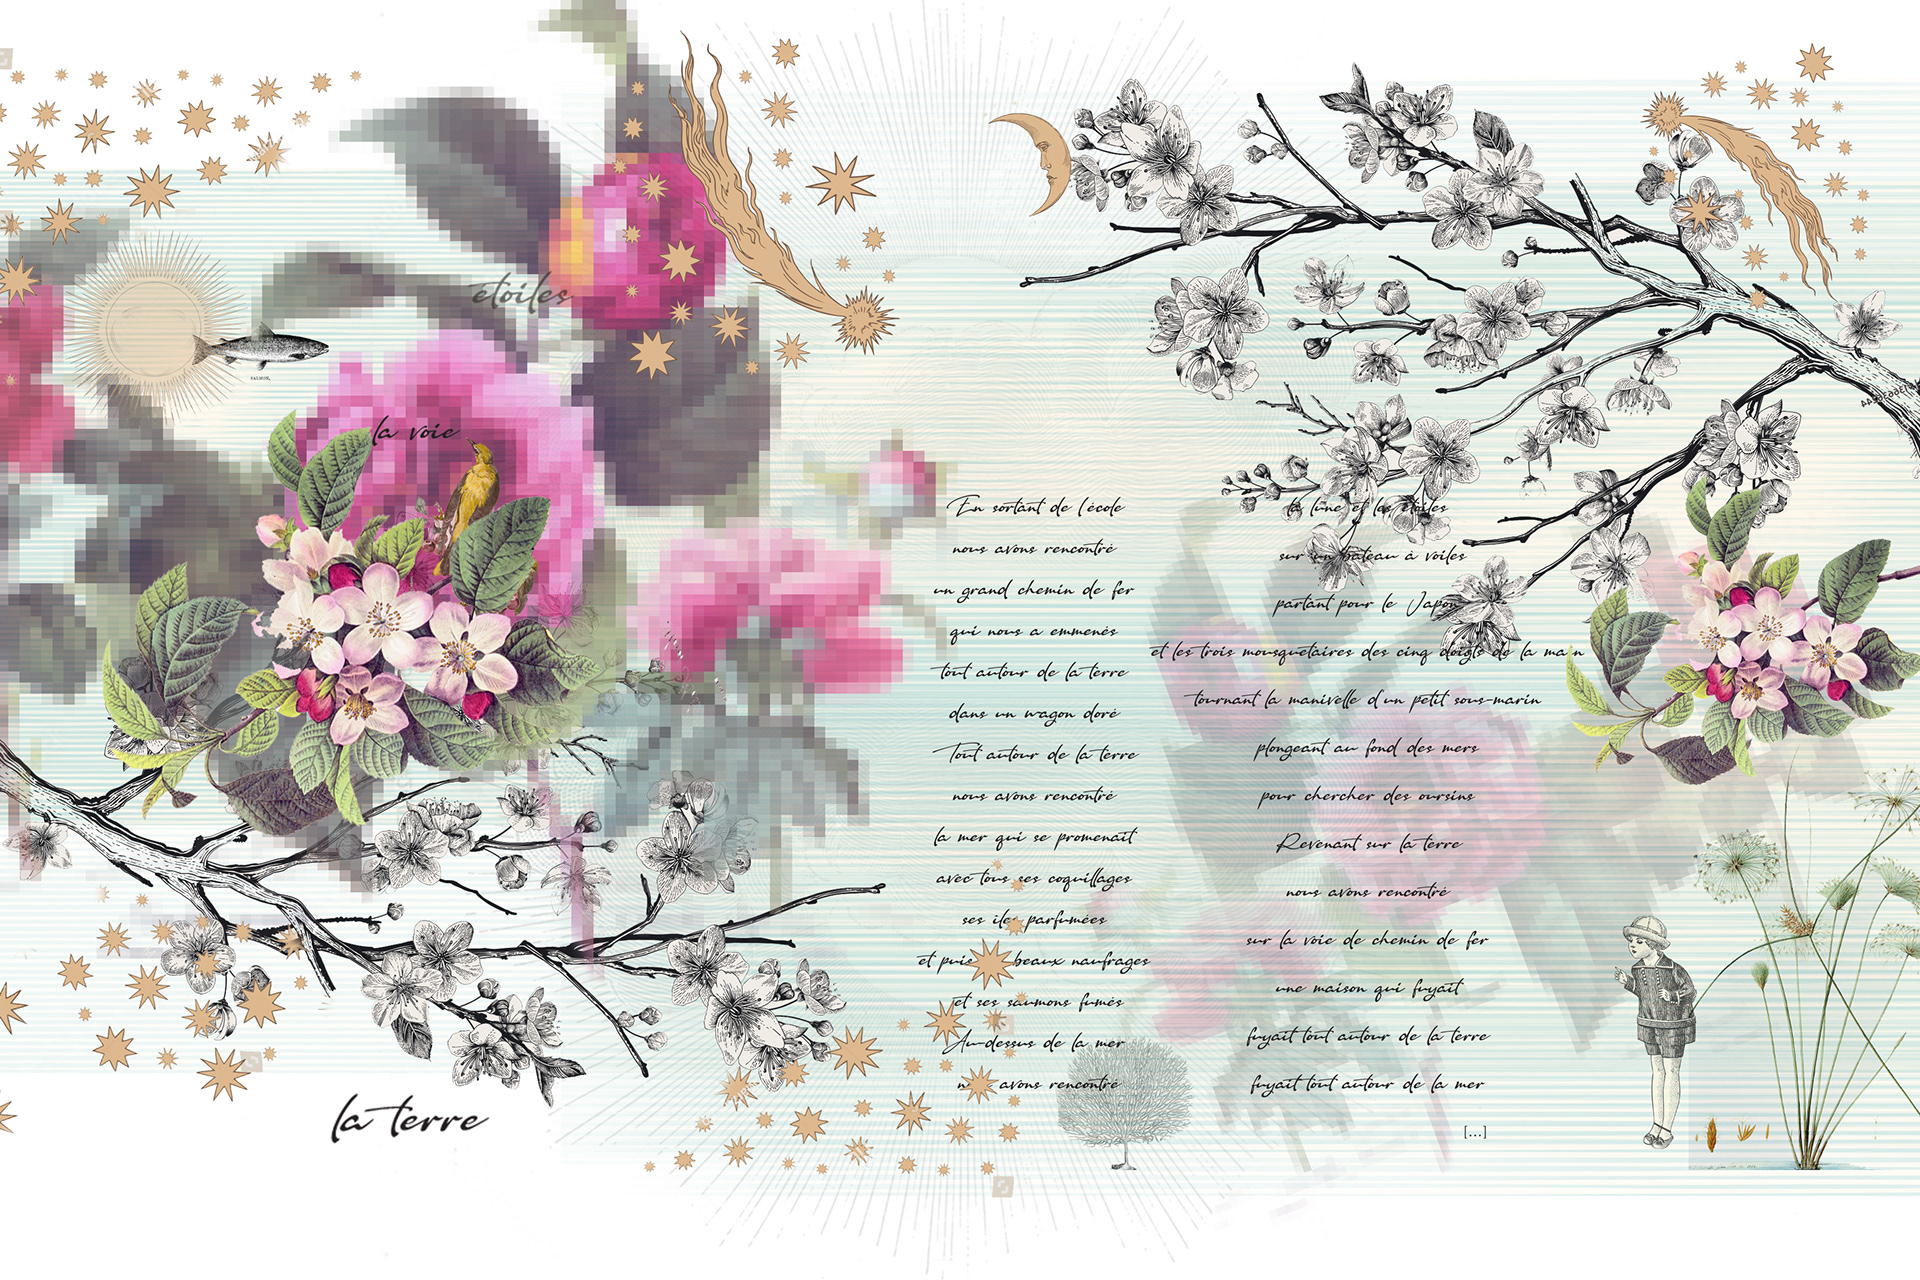 étoiles
SALMON.
la voie
En sortant de l'école
nous avons rencontré
un grand chemin de fer
qui nous a emmenés
tout autour de la terre
dans un wagon doré
Tout autour de la terre
nous avons rencontré
la mer qui se promenait
avec tous ses coquillages
ses îles parfumées
et puis beaux naufrages
et ses saumons fumés
Au-dessus de la mer
avons rencontré
la lune et les étoiles
sur un bateau à voiles
partant pour le Japon
et les trois mousquetaires des cinq doigts de la main
tournant la manivelle d'un petit sous-marin
plongeant au fond des mers
pour chercher des oursins
Revenant sur la terre
nous avons rencontré
sur la voie de chemin de fer
une maison qui fuyait
fuyait tout autour de la terre
fuyait tout autour de la mer
[...]
la terre